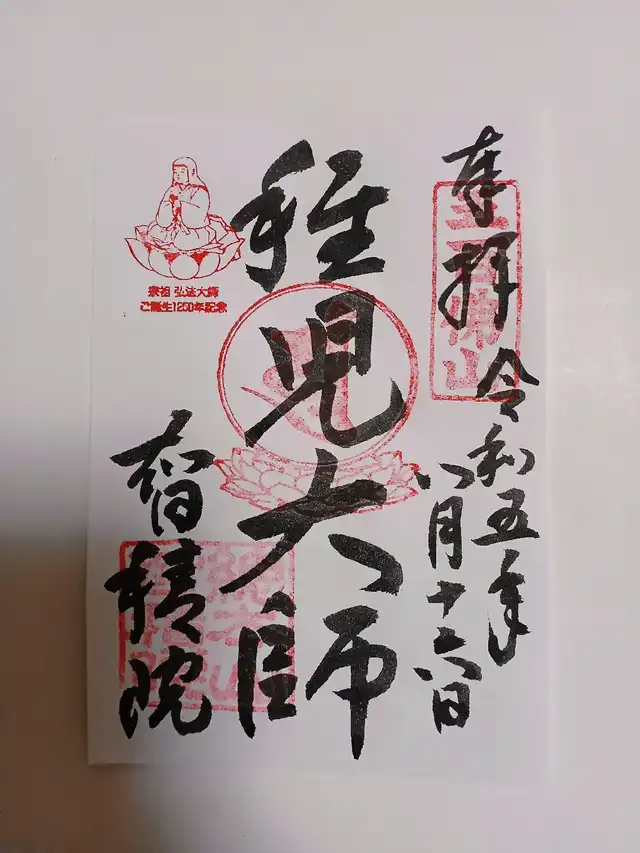 奉拝
五百佛山
令和五年
八月十六日
稚児大師
宗祖 弘法大師
ご誕生1250年記念
智積院
総本山
智積院